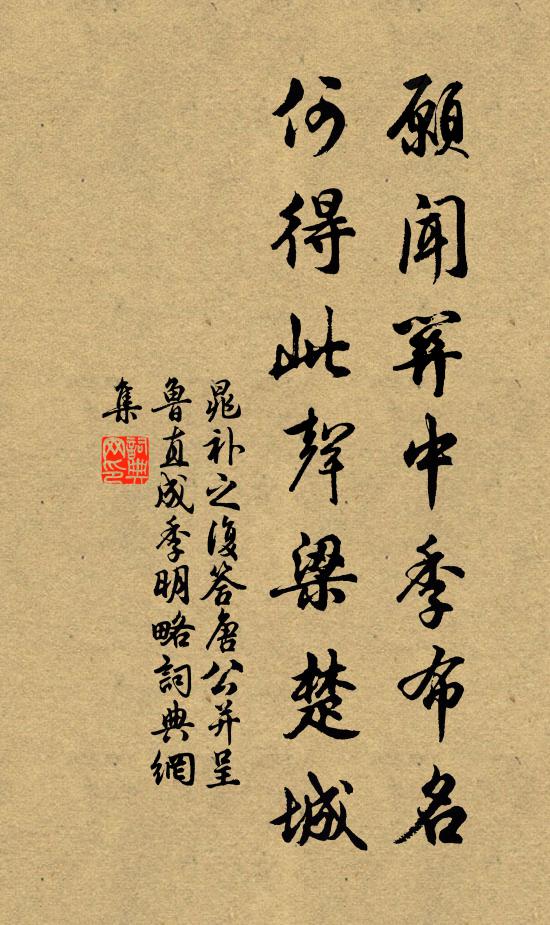 願聞關中季布名
何得此聲梁楚城
晁补之復答唐公并呈
魯直成季明略詞典網
集
詞典
网印